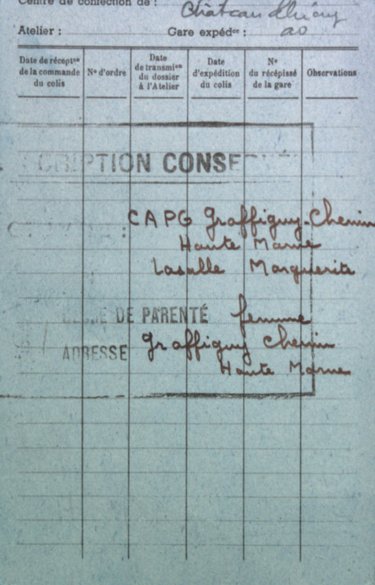 Centre de confection de : Château Thierry
Atelier : Gare expédce : ao
Date de récepton de la commande du colis
N° d'ordre
Date de transmion du dossier à l'Atelier
Date d'expédition du colis
N° du récépissé de la gare
Observations
CRIPTION CONSE
CAPG Graffigny-Chemin
Haute Marne
Lasalle Marguerite
DE PARENTÉ femme
ADRESSE Graffigny Chemin
Haute Marne